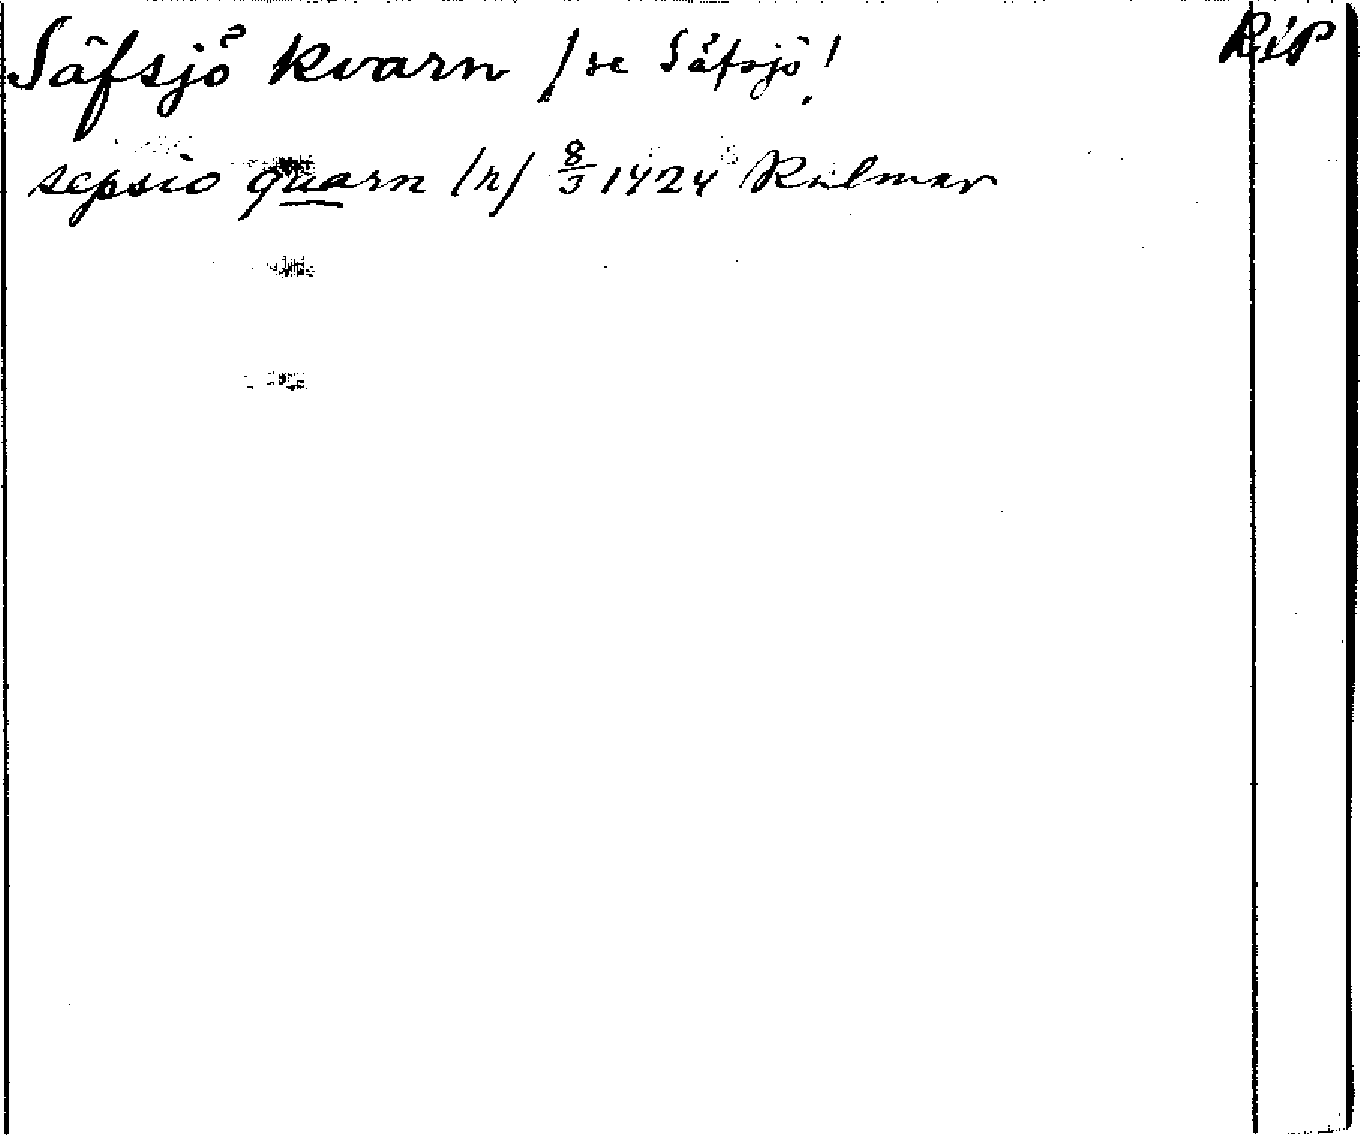 Säfsjö kvarn /se Säfsjö! RiP
sepsio quarn /r/ 8/5 1424 Kalmar